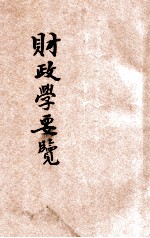 財政學要覽